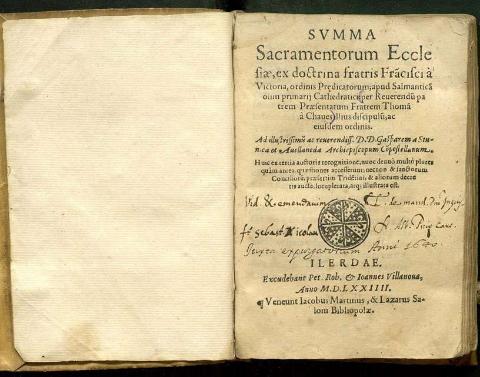 SVMMA
Sacramentorum Eccle
siæ, ex doctrina fratris Frãcisci à
Victoria, ordinis Prędicatorum, apud Salmanticã
olim primarij Cathedratici, per Reuerendũ pa
trem Præsentatum Fratrem Thomã
à Chaues illius discipulũ, ac
eiusdem ordinis.
Ad illustrissimũ ac reuerendiss. D. D. Gasparem a Stu-
nica et Auellaneda Archiepiscopum Cõpostellanum.
Huic ex tertia auctoris recognitione, nunc denuò multò plures
quàm antea quæstiones accesserunt: necnon & sanctorum
Conciliorũ, præsertim Tridẽtini, & aliorum decre
tis aucta, locupletata, atq; illustrata est.
Vid. & emendaum de mand. Dñi
fr sebast Nicolau
Iuxta expurgatorium Anni 1640
ILERDAE.
Excudebant Pet. Rob. & Ioannes Villanoua,
Anno M.D.LXXIIII.
¶ Veneunt Iacobus Martinus, & Lazarus Sa-
lom Bibliopolæ.